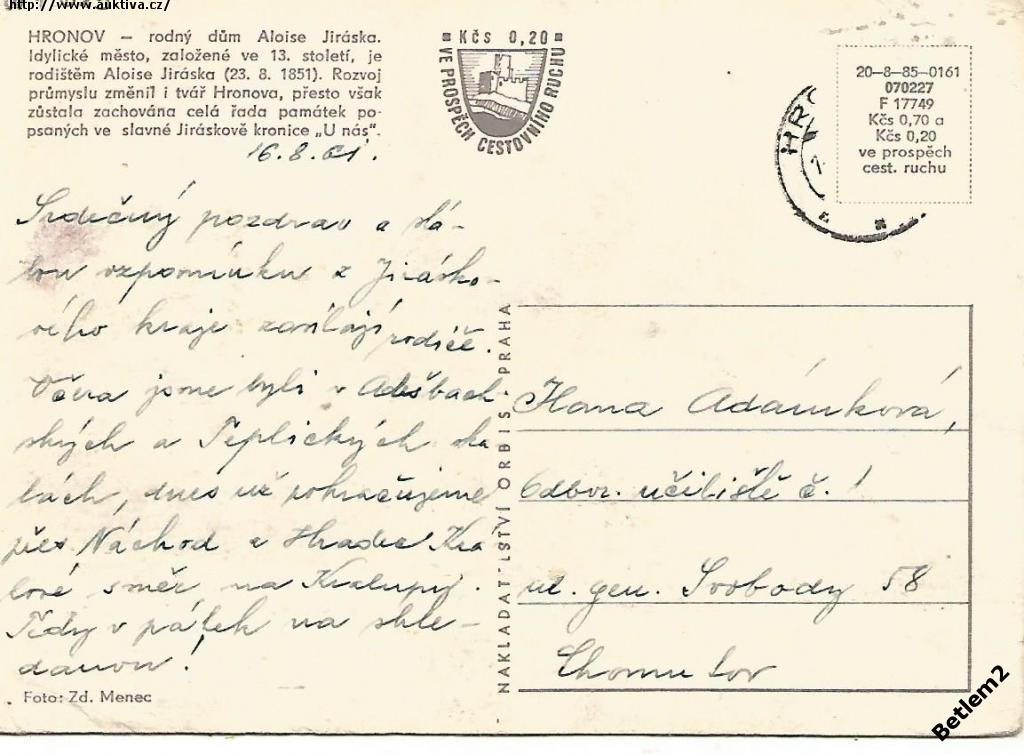 http://www.auktiva.cz/
HRONOV — rodný dům Aloise Jiráska.
Idylické město, založené ve 13. století, je
rodištěm Aloise Jiráska (23. 8. 1851). Rozvoj
průmyslu změnil i tvář Hronova, přesto však
zůstala zachována celá řada památek po-
psaných ve slavné Jiráskově kronice „U nás".
Kčs 0,20
VE PROSPĚCH CESTOVNÍHO RUCHU
HRO
20—8—85—0161
070227
F 17749
Kčs 0,70 a
Kčs 0,20
ve prospěch
cest. ruchu
16. 8. 61.
Srdečný pozdrav a slá-
bou vzpomínku z Jirásko-
vého kraje zasílají rodiče.
Včera jsme byli v Adršbach
ských a Teplických ska
lách, dnes už pokračujeme
přes Náchod a Hradec Krá
lové směr na Kralupy.
Tedy v pátek na shle-
danou!
Foto: Zd. Menec
NAKLADATELSTVÍ ORBIS · PRAHA
Hana Adámková,
Odbor. učiliště č. 1
ul. gen. Svobody 58
Chomutov
Betlem2